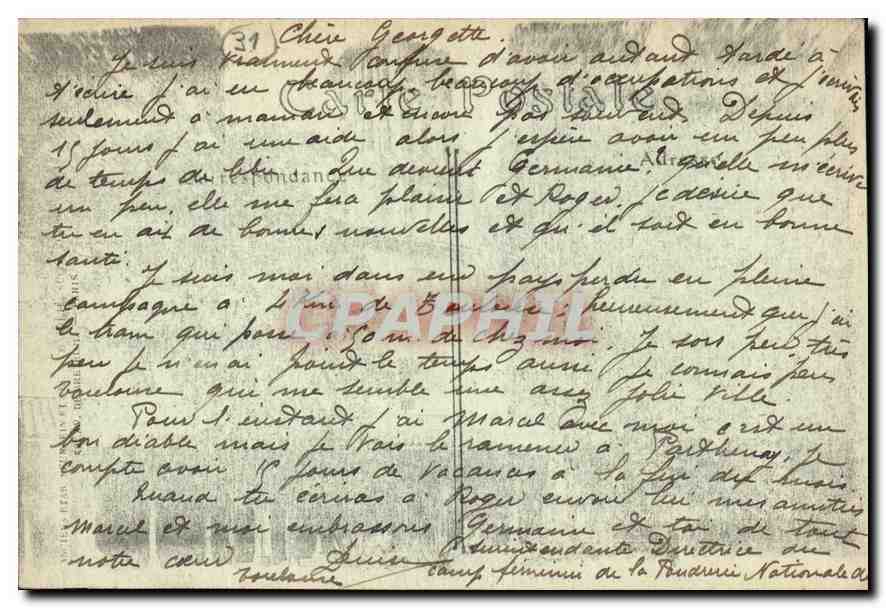 31
Chère Georgette.
Je suis vraiment confuse d'avoir autant tardé à
t'écrire j'ai eu beaucoup beaucoup d'occupations et j'écrivais
Carte Postale
seulement à maman et encore pas souvent. Depuis
15 jours j'ai une aide alors j'espère avoir un peu plus
Correspondance
Adresse
de temps de libre. Que devient Germaine? qu'elle m'écrive
un peu, elle me fera plaisir et Roger, je désire que
tu en ais de bonnes nouvelles et qu'il soit en bonne
santé.
Je suis moi dans un pays perdu en pleine
campagne à 4 Km de Toulouse, heureusement que j'ai
CPAPHIL
le tram qui passe à 50 m. de chez moi. Je sors peu, très
peu je n'en ai point le temps aussi je connais peu
Toulouse qui me semble une assez jolie ville.
Pour l'instant j'ai Marcel avec moi c'est un
bon diable mais je vais le ramener à Parthenay, je
compte avoir 15 jours de vacances à la fin du mois
Quand tu écriras à Roger envoie lui mes amitiés
Marcel et moi embrassons Germaine et toi de tout
notre cœur
surintendante Directrice du
camp féminin de la Poudrerie Nationale de
Toulouse